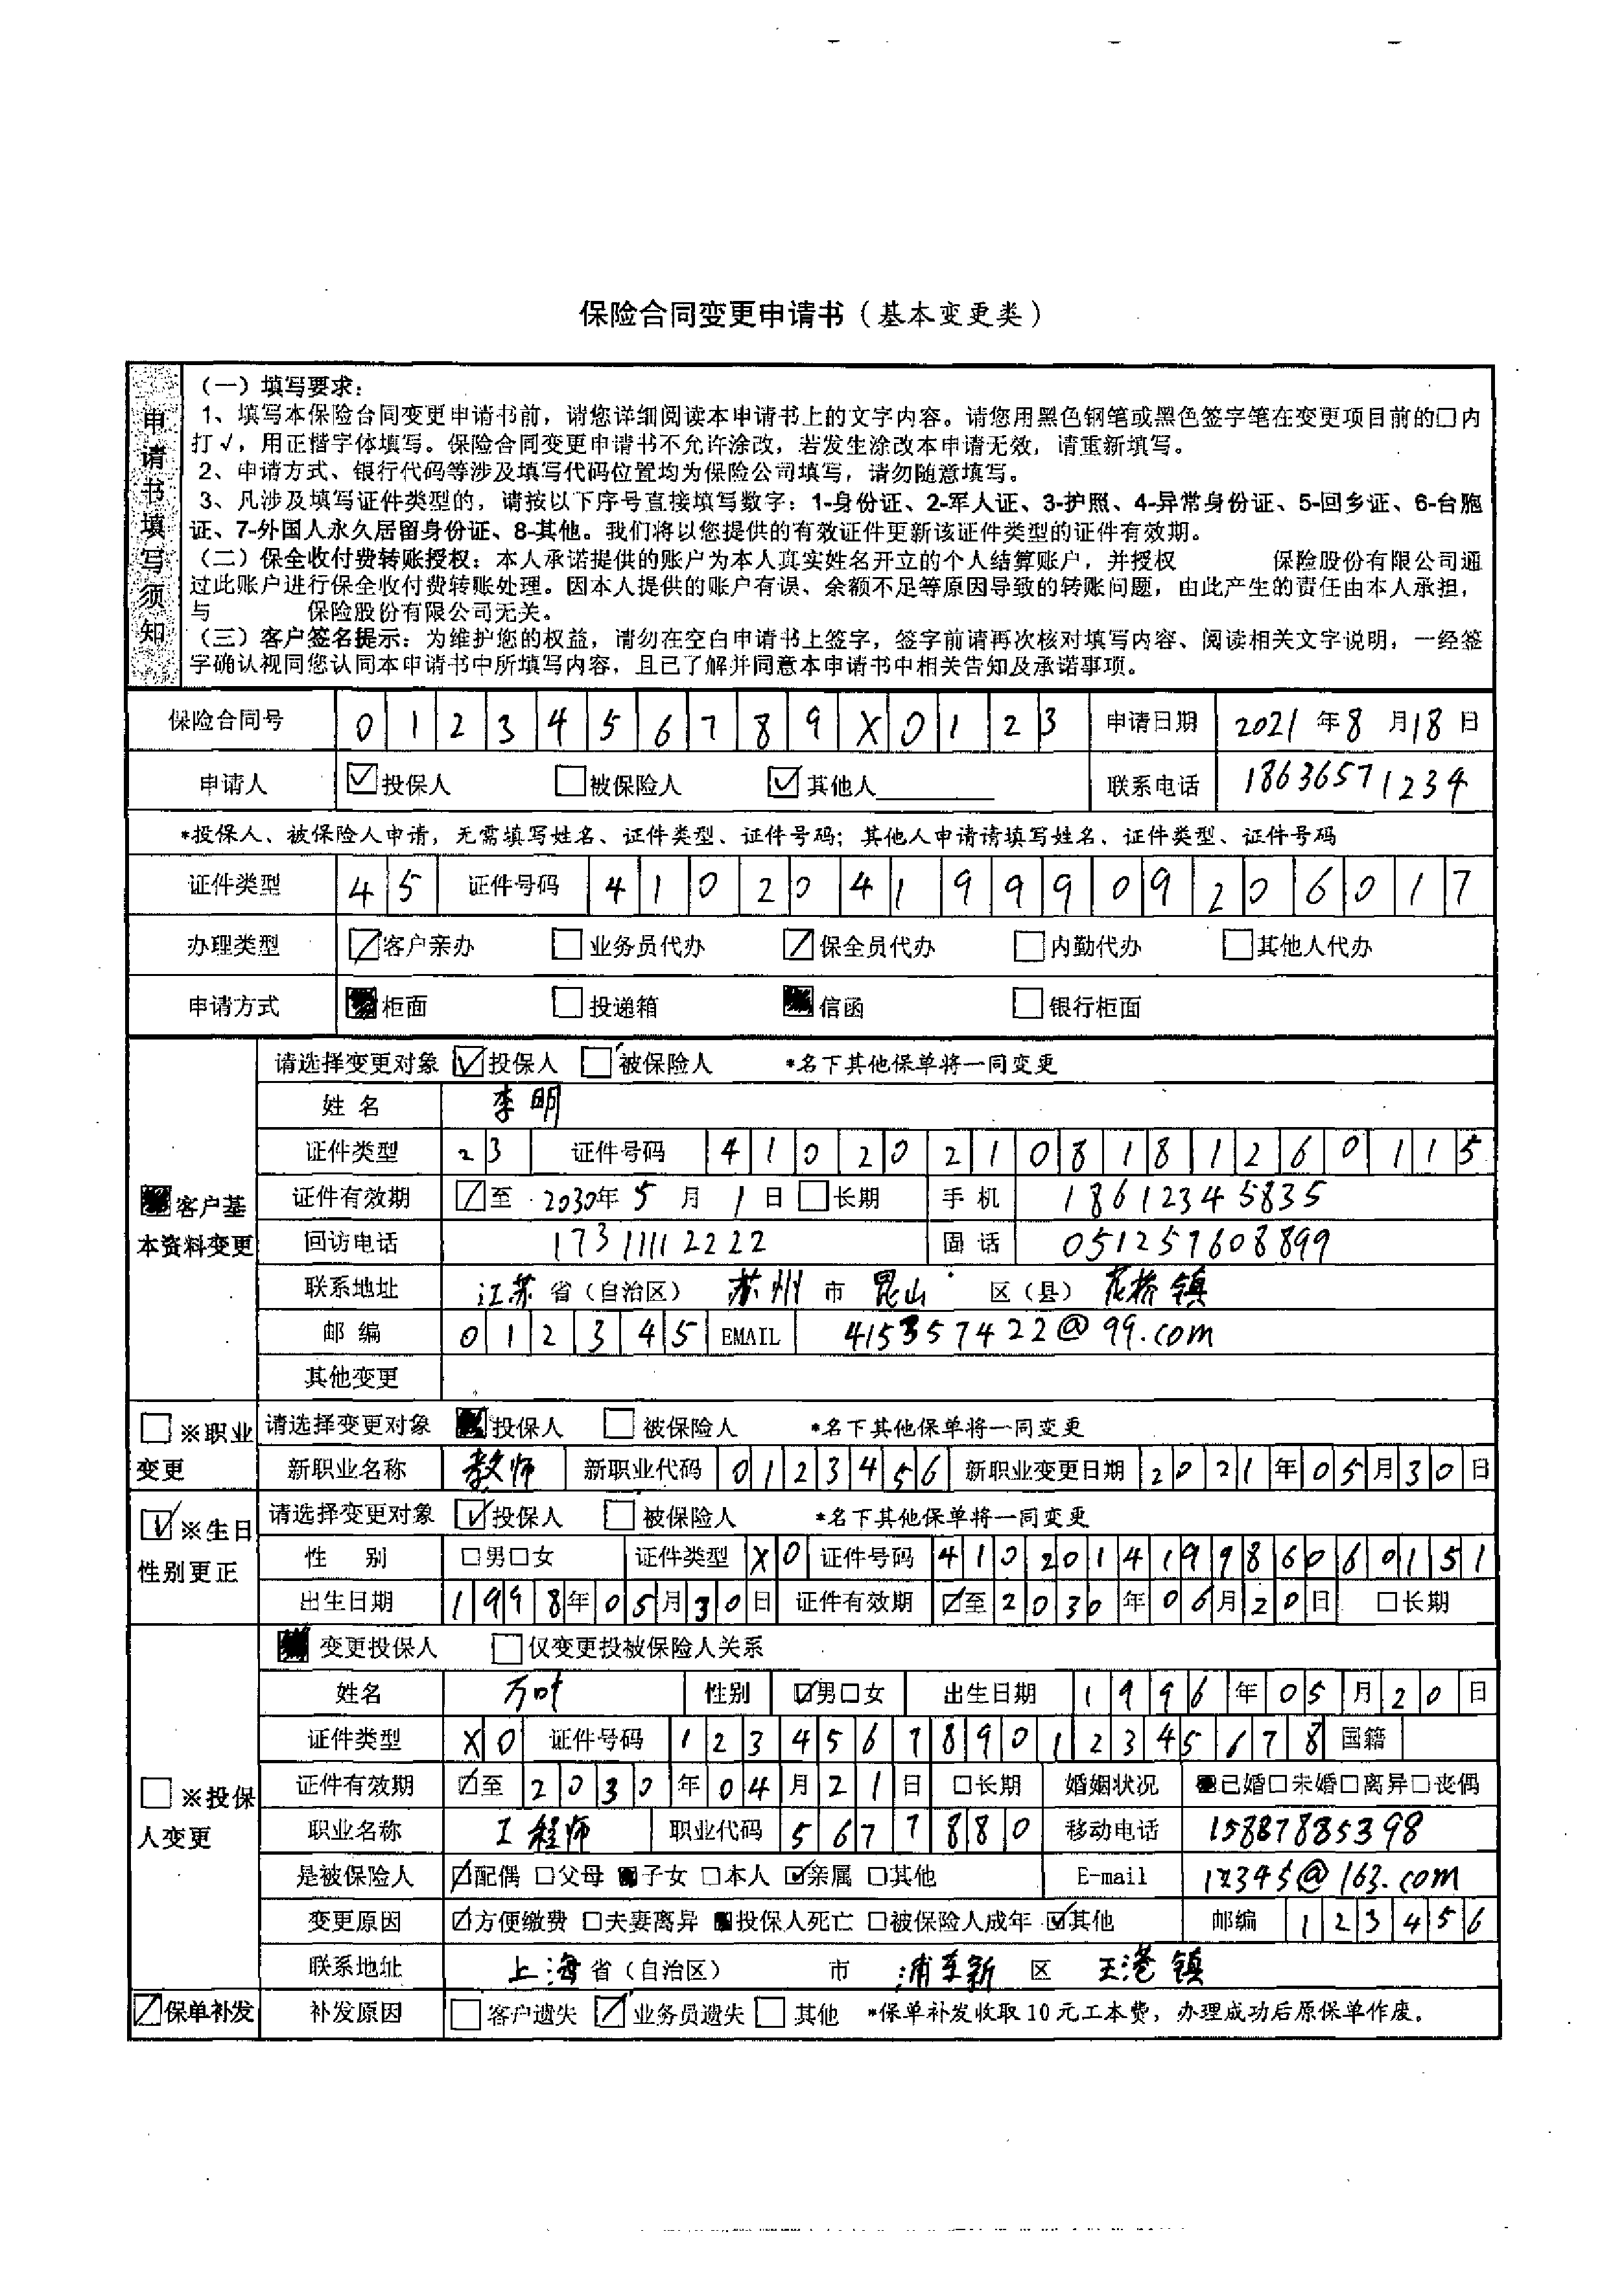 保险合同变更申请书（基本变更类）
申请书填写须知
（一）填写要求：
1、填写本保险合同变更申请书前，请您详细阅读本申请书上的文字内容。请您用黑色钢笔或黑色签字笔在变更项目前的□内
打√，用正楷字体填写。保险合同变更申请书不允许涂改，若发生涂改本申请无效，请重新填写。
2、申请方式、银行代码等涉及填写代码位置均为保险公司填写，请勿随意填写。
3、凡涉及填写证件类型的，请按以下序号直接填写数字：1-身份证、2-军人证、3-护照、4-异常身份证、5-回乡证、6-台胞
证、7-外国人永久居留身份证、8-其他。我们将以您提供的有效证件更新该证件类型的证件有效期。
（二）保全收付费转账授权：本人承诺提供的账户为本人真实姓名开立的个人结算账户，并授权 保险股份有限公司通
过此账户进行保全收付费转账处理。因本人提供的账户有误、余额不足等原因导致的转账问题，由此产生的责任由本人承担，
与 保险股份有限公司无关。
（三）客户签名提示：为维护您的权益，请勿在空白申请书上签字，签字前请再次核对填写内容、阅读相关文字说明，一经签
字确认视同您认同本申请书中所填写内容，且已了解并同意本申请书中相关告知及承诺事项。
保险合同号 0123456789X0123 申请日期 2021年8月18日
申请人 ☑投保人 □被保险人 ☑其他人 联系电话 18636571234
*投保人、被保险人申请，无需填写姓名、证件类型、证件号码；其他人申请请填写姓名、证件类型、证件号码
证件类型 45 证件号码 410204199909206017
办理类型 ☑客户亲办 □业务员代办 ☑保全员代办 □内勤代办 □其他人代办
申请方式 ■柜面 □投递箱 ■信函 □银行柜面
■客户基本资料变更
请选择变更对象 ☑投保人 □被保险人 *名下其他保单将一同变更
姓名 李明
证件类型 23 证件号码 410202108181260115
证件有效期 ☑至 2030年5月1日 □长期 手机 18612345835
回访电话 17311112222 固话 051257608899
联系地址 江苏 省（自治区） 苏州 市 昆山 区（县） 花桥镇
邮编 012345 EMAIL 415357422@99.com
其他变更
□※职业变更
请选择变更对象 ■投保人 □被保险人 *名下其他保单将一同变更
新职业名称 教师 新职业代码 0123456 新职业变更日期 2021年05月30日
☑※生日性别更正
请选择变更对象 ☑投保人 □被保险人 *名下其他保单将一同变更
性别 □男□女 证件类型 X0 证件号码 410201419986060151
出生日期 1998年05月30日 证件有效期 ☑至2030年06月20日 □长期
□※投保人变更
■变更投保人 □仅变更投被保险人关系
姓名 万叶 性别 ☑男□女 出生日期 1996年05月20日
证件类型 X0 证件号码 123456789012345678 国籍
证件有效期 ☑至2030年04月21日 □长期 婚姻状况 ■已婚□未婚□离异□丧偶
职业名称 工程师 职业代码 5677880 移动电话 15887885398
是被保险人 ☑配偶 □父母 ■子女 □本人 ☑亲属 □其他 E-mail 12345@163.com
变更原因 ☑方便缴费 □夫妻离异 ■投保人死亡 □被保险人成年 ☑其他 邮编 123456
联系地址 上海 省（自治区） 市 浦东新 区 王港镇
☑保单补发 补发原因 □客户遗失 ☑业务员遗失 □其他 *保单补发收取10元工本费，办理成功后原保单作废。